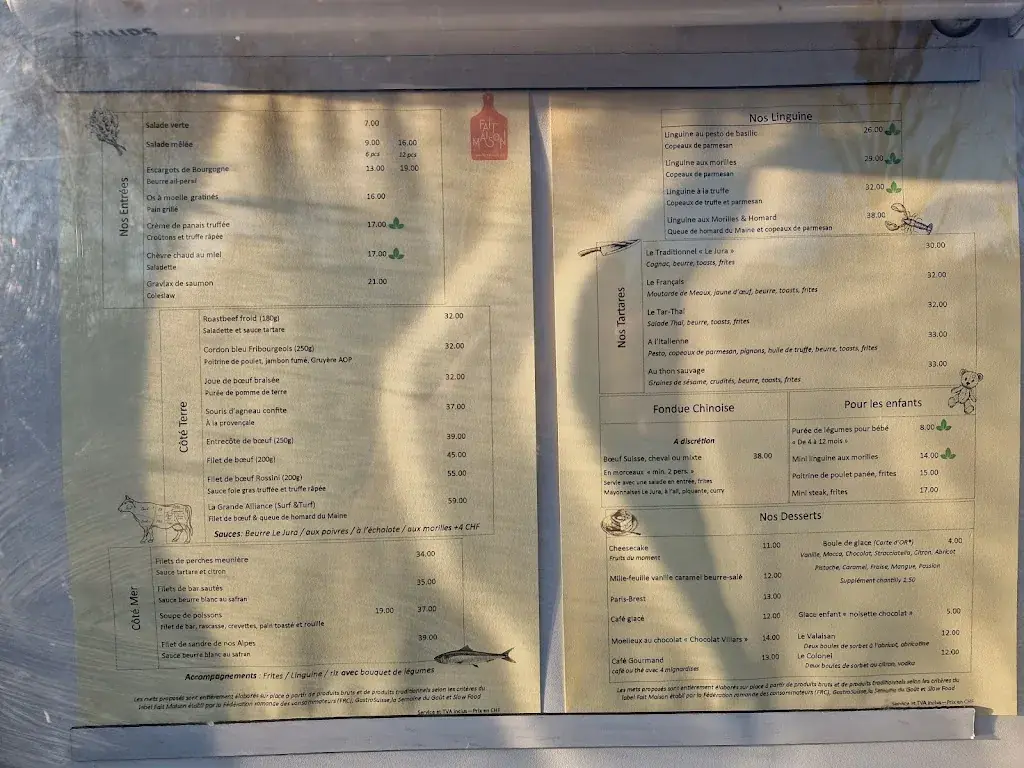 PHILIPS
FAIT
MAISON
Nos Entrées
Salade verte 7.00
Salade mêlée 9.00 16.00
6 pcs 12 pcs
Escargots de Bourgogne 13.00 19.00
Beurre ail-persil
Os à moelle gratinés 16.00
Pain grillé
Crème de panais truffée 17.00
Croûtons et truffe râpée
Chèvre chaud au miel 17.00
Saladette
Gravlax de saumon 21.00
Coleslaw
Côté Terre
Roastbeef froid (180g) 32.00
Saladette et sauce tartare
Cordon bleu Fribourgeois (250g) 32.00
Poitrine de poulet, jambon fumé, Gruyère AOP
Joue de bœuf braisée 32.00
Purée de pomme de terre
Souris d'agneau confite 37.00
À la provençale
Entrecôte de bœuf (250g) 39.00
Filet de bœuf (200g) 45.00
Filet de bœuf Rossini (200g) 55.00
Sauce foie gras truffée et truffe râpée
La Grande Alliance (Surf &Turf) 59.00
Filet de bœuf & queue de homard du Maine
Sauces: Beurre Le Jura / aux poivres / à l'échalote / aux morilles +4 CHF
Côté Mer
Filets de perches meunière 34.00
Sauce tartare et citron
Filets de bar sautés 35.00
Sauce beurre blanc au safran
Soupe de poissons 19.00 37.00
Filet de bar, rascasse, crevettes, pain toasté et rouille
Filet de sandre de nos Alpes 39.00
Sauce beurre blanc au safran
Accompagnements : Frites / Linguine / riz avec bouquet de légumes
Les mets proposés sont entièrement élaborés sur place à partir de produits bruts et de produits traditionnels selon les critères du
label Fait Maison établi par la Fédération romande des consommateurs (FRC), GastroSuisse, la Semaine du Goût et Slow Food
Service et TVA inclus—Prix en CHF
Nos Linguine
Linguine au pesto de basilic 26.00
Copeaux de parmesan
Linguine aux morilles 29.00
Copeaux de parmesan
Linguine à la truffe 32.00
Copeaux de truffe et parmesan
Linguine aux Morilles & Homard 38.00
Queue de homard du Maine et copeaux de parmesan
Nos Tartares
Le Traditionnel « Le Jura » 30.00
Cognac, beurre, toasts, frites
Le Français 32.00
Moutarde de Meaux, jaune d'œuf, beurre, toasts, frites
Le Tar-Thaï 32.00
Salade Thaï, beurre, toasts, frites
A l'Italienne 33.00
Pesto, copeaux de parmesan, pignons, huile de truffe, beurre, toasts, frites
Au thon sauvage 33.00
Graines de sésame, crudités, beurre, toasts, frites
Fondue Chinoise
A discrétion
Bœuf Suisse, cheval ou mixte 38.00
En morceaux « min. 2 pers. »
Servie avec une salade en entrée, frites
Mayonnaises Le Jura, à l'ail, piquante, curry
Pour les enfants
Purée de légumes pour bébé 8.00
« De 4 à 12 mois »
Mini linguine aux morilles 14.00
Poitrine de poulet panée, frites 15.00
Mini steak, frites 17.00
Nos Desserts
Cheesecake 11.00
Fruits du moment
Mille-feuille vanille caramel beurre-salé 12.00
Paris-Brest 13.00
Café glacé 12.00
Moelleux au chocolat « Chocolat Villars » 14.00
Café Gourmand 13.00
café ou thé avec 4 mignardises
Boule de glace (Carte d'OR*) 4.00
Vanille, Mocca, Chocolat, Stracciatella, Citron, Abricot
Pistache, Caramel, Fraise, Mangue, Passion
Supplément chantilly 1.50
Glace enfant « noisette chocolat » 5.00
Le Valaisan 12.00
Deux boules de sorbet à l'abricot, abricotine
Le Colonel 12.00
Deux boules de sorbet au citron, vodka
Les mets proposés sont entièrement élaborés sur place à partir de produits bruts et de produits traditionnels selon les critères du
label Fait Maison établi par la Fédération romande des consommateurs (FRC), GastroSuisse, la Semaine du Goût et Slow Food
Service et TVA inclus—Prix en CHF